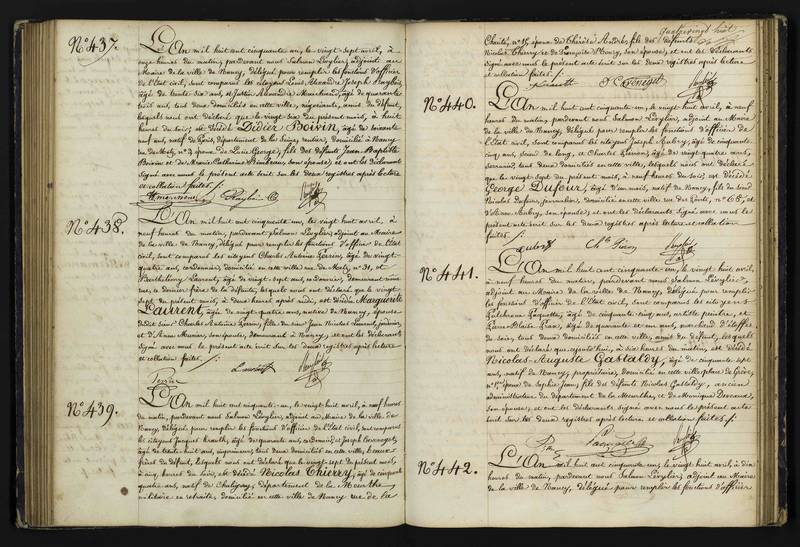 N.° 437.
L'An mil huit cent cinquante un, le vingt-sept avril, à
onze heures du matin, pardevant nous Salmon Lévylier, adjoint au
Maire de la ville de Nancy, délégué pour remplir les fonctions d'officier
de l'Etat civil, sont comparus les citoyens Louis Alexandre Joseph
âgé de trente-six ans, et Justin Alexandre âgé de quarante
trois ans, tous deux domiciliés en cette ville, négociants, amis du défunt,
lesquels nous ont déclaré que le vingt-six du présent mois, à huit
heures du soir, est décédé Didier Boivin, âgé de soixante
neuf ans, natif de Paris, département de la Seine, rentier, domicilié à Nancy
époux de Lise George, fils des défunts Jean-Baptiste
Boivin et de Marie Catherine son épouse; et ont les déclarants
signé avec nous le présent acte écrit sur les deux registres après lecture
et collation faites./.
N.° 438.
L'An mil huit cent cinquante un, le vingt huit avril, à
neuf heures du matin, pardevant nous Salmon Lévylier, adjoint au Maire
de la ville de Nancy, délégué pour remplir les fonctions d'officier de l'Etat
civil, sont comparus les citoyens Charles Antoine Perrin, âgé de vingt-
quatre ans, cordonnier, domicilié en cette ville rue de Metz, n.° 31, et
Barthélemy Laurent, âgé de vingt-sept ans, cordonnier, demeurant même
rue, ce dernier frère de la défunte, lesquels nous ont déclaré que le vingt-
sept du présent mois, à deux heures après midi, est décédée Marguerite
Laurent, âgée de vingt-quatre ans, native de Nancy, épouse
dudit sieur Charles Antoine Perrin, fille du sieur Jean Nicolas Laurent,
et d'Anne son épouse, demeurant à Nancy, et ont les déclarants
signé avec nous le présent acte écrit sur les deux registres après lecture
et collation faites./.
Perrin Laurent
N.° 439.
L'An mil huit cent cinquante-un, le vingt huit avril, à neuf heures
du matin, pardevant nous Salmon Lévylier, adjoint au Maire de la ville de
Nancy, délégué pour remplir les fonctions d'officier de l'Etat civil, sont comparus
les citoyens Jacques âgé de quarante ans, cordonnier, et Joseph
âgé de trente-huit ans, imprimeur, tous deux domiciliés en cette ville,
du défunt, lesquels nous ont déclaré que le vingt-sept du présent mois,
à six heures du soir, est décédé Nicolas Thierry, âgé de cinquante
quatre ans, natif de Chaligny, département de la Meurthe,
militaire en retraite, domicilié en cette ville de Nancy rue de la
quatre vingt huit
Charité, n.° 15, époux de Thérèse André, fils des défunts
Nicolas Thierry et de Françoise son épouse, et ont les déclarants
signé avec nous le présent acte écrit sur les deux registres après lecture
et collation faites./.
N.° 440.
L'An mil huit cent cinquante un, le vingt huit avril, à neuf
heures du matin, pardevant nous Salmon Lévylier, adjoint au Maire
de la ville de Nancy, délégué pour remplir les fonctions d'officier de
l'Etat civil, sont comparus les citoyens Joseph Aubry, âgé de cinquante-
cinq ans, scieur de long, et Charles âgé de vingt quatre ans,
serrurier, tous deux domiciliés en cette ville, lesquels nous ont déclaré
que le vingt-sept du présent mois, à neuf heures du soir, est décédé
George Dufour, âgé d'un mois, natif de Nancy, fils du sieur
Nicolas Dufour, journalier, domicilié en cette ville rue n.° 68, et
d'Anne Aubry, son épouse; et ont les déclarants signé avec nous le
présent acte écrit sur les deux registres après lecture et collation
faites./.
N.° 441.
L'An mil huit cent cinquante-un, le vingt huit avril,
à neuf heures du matin, pardevant nous Salmon Lévylier,
adjoint au Maire de la ville de Nancy, délégué pour remplir
les fonctions d'officier de l'Etat civil, sont comparus les citoyens
âgé de cinquante-cinq ans, artiste peintre, et
Pierre Blaise âgé de quarante et un ans, marchand d'étoffes
de soie, tous deux domiciliés en cette ville, amis du défunt, lesquels
nous ont déclaré que aujourd'hui, à six heures du matin, est décédé
Nicolas-Auguste Gastaldy, âgé de cinquante sept
ans, natif de Nancy, propriétaire, domicilié en cette ville place de Grève,
n.° 1er, époux de Sophie Jean, fils des défunts Nicolas Gastaldy, ancien
administrateur du département de la Meurthe, et de Monique
son épouse; et ont les déclarants signé avec nous le présent acte
écrit sur les deux registres après lecture et collation faites./.
N.° 442.
L'An mil huit cent cinquante un, le vingt huit avril, à dix
heures du matin, pardevant nous Salmon Lévylier, adjoint au Maire
de la ville de Nancy, délégué pour remplir les fonctions d'officier